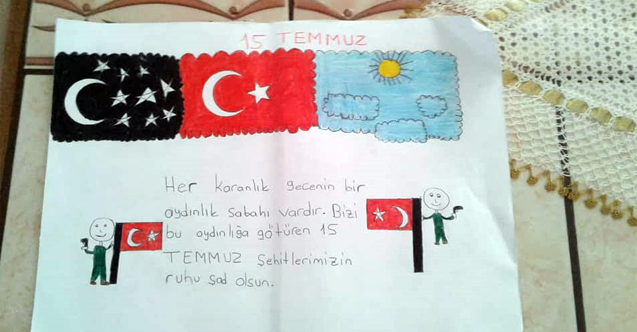 15 TEMMUZ
Her karanlık gecenin bir
aydınlık sabahı vardır. Bizi
bu aydınlığa götüren 15
TEMMUZ Şehitlerimizin
ruhu şad olsun.